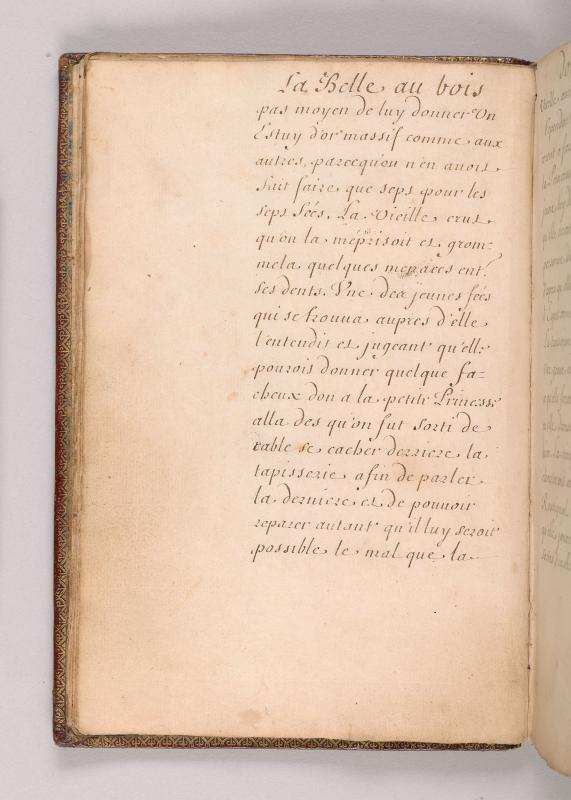 La Belle au bois
pas moyen de luy donner Un
Estuy d'or massif comme aux
autres, parcequ'on n'en auoit
fait faire que sept pour les
sept fées. La Vieille crut
qu'on la méprisoit et grom=
mela quelques menaces ent.
ses dents. Vne des jeunes fées
qui se trouua aupres d'elle
l'entendit et jugeant qu'elle
pouroit donner quelque fa=
cheux don a la petite Princesse
alla des qu'on fut sorti de
table se cacher derriere la
tapisserie afin de parler
la derniere et de pouuoir
reparer autant qu'il luy seroit
possible le mal que la